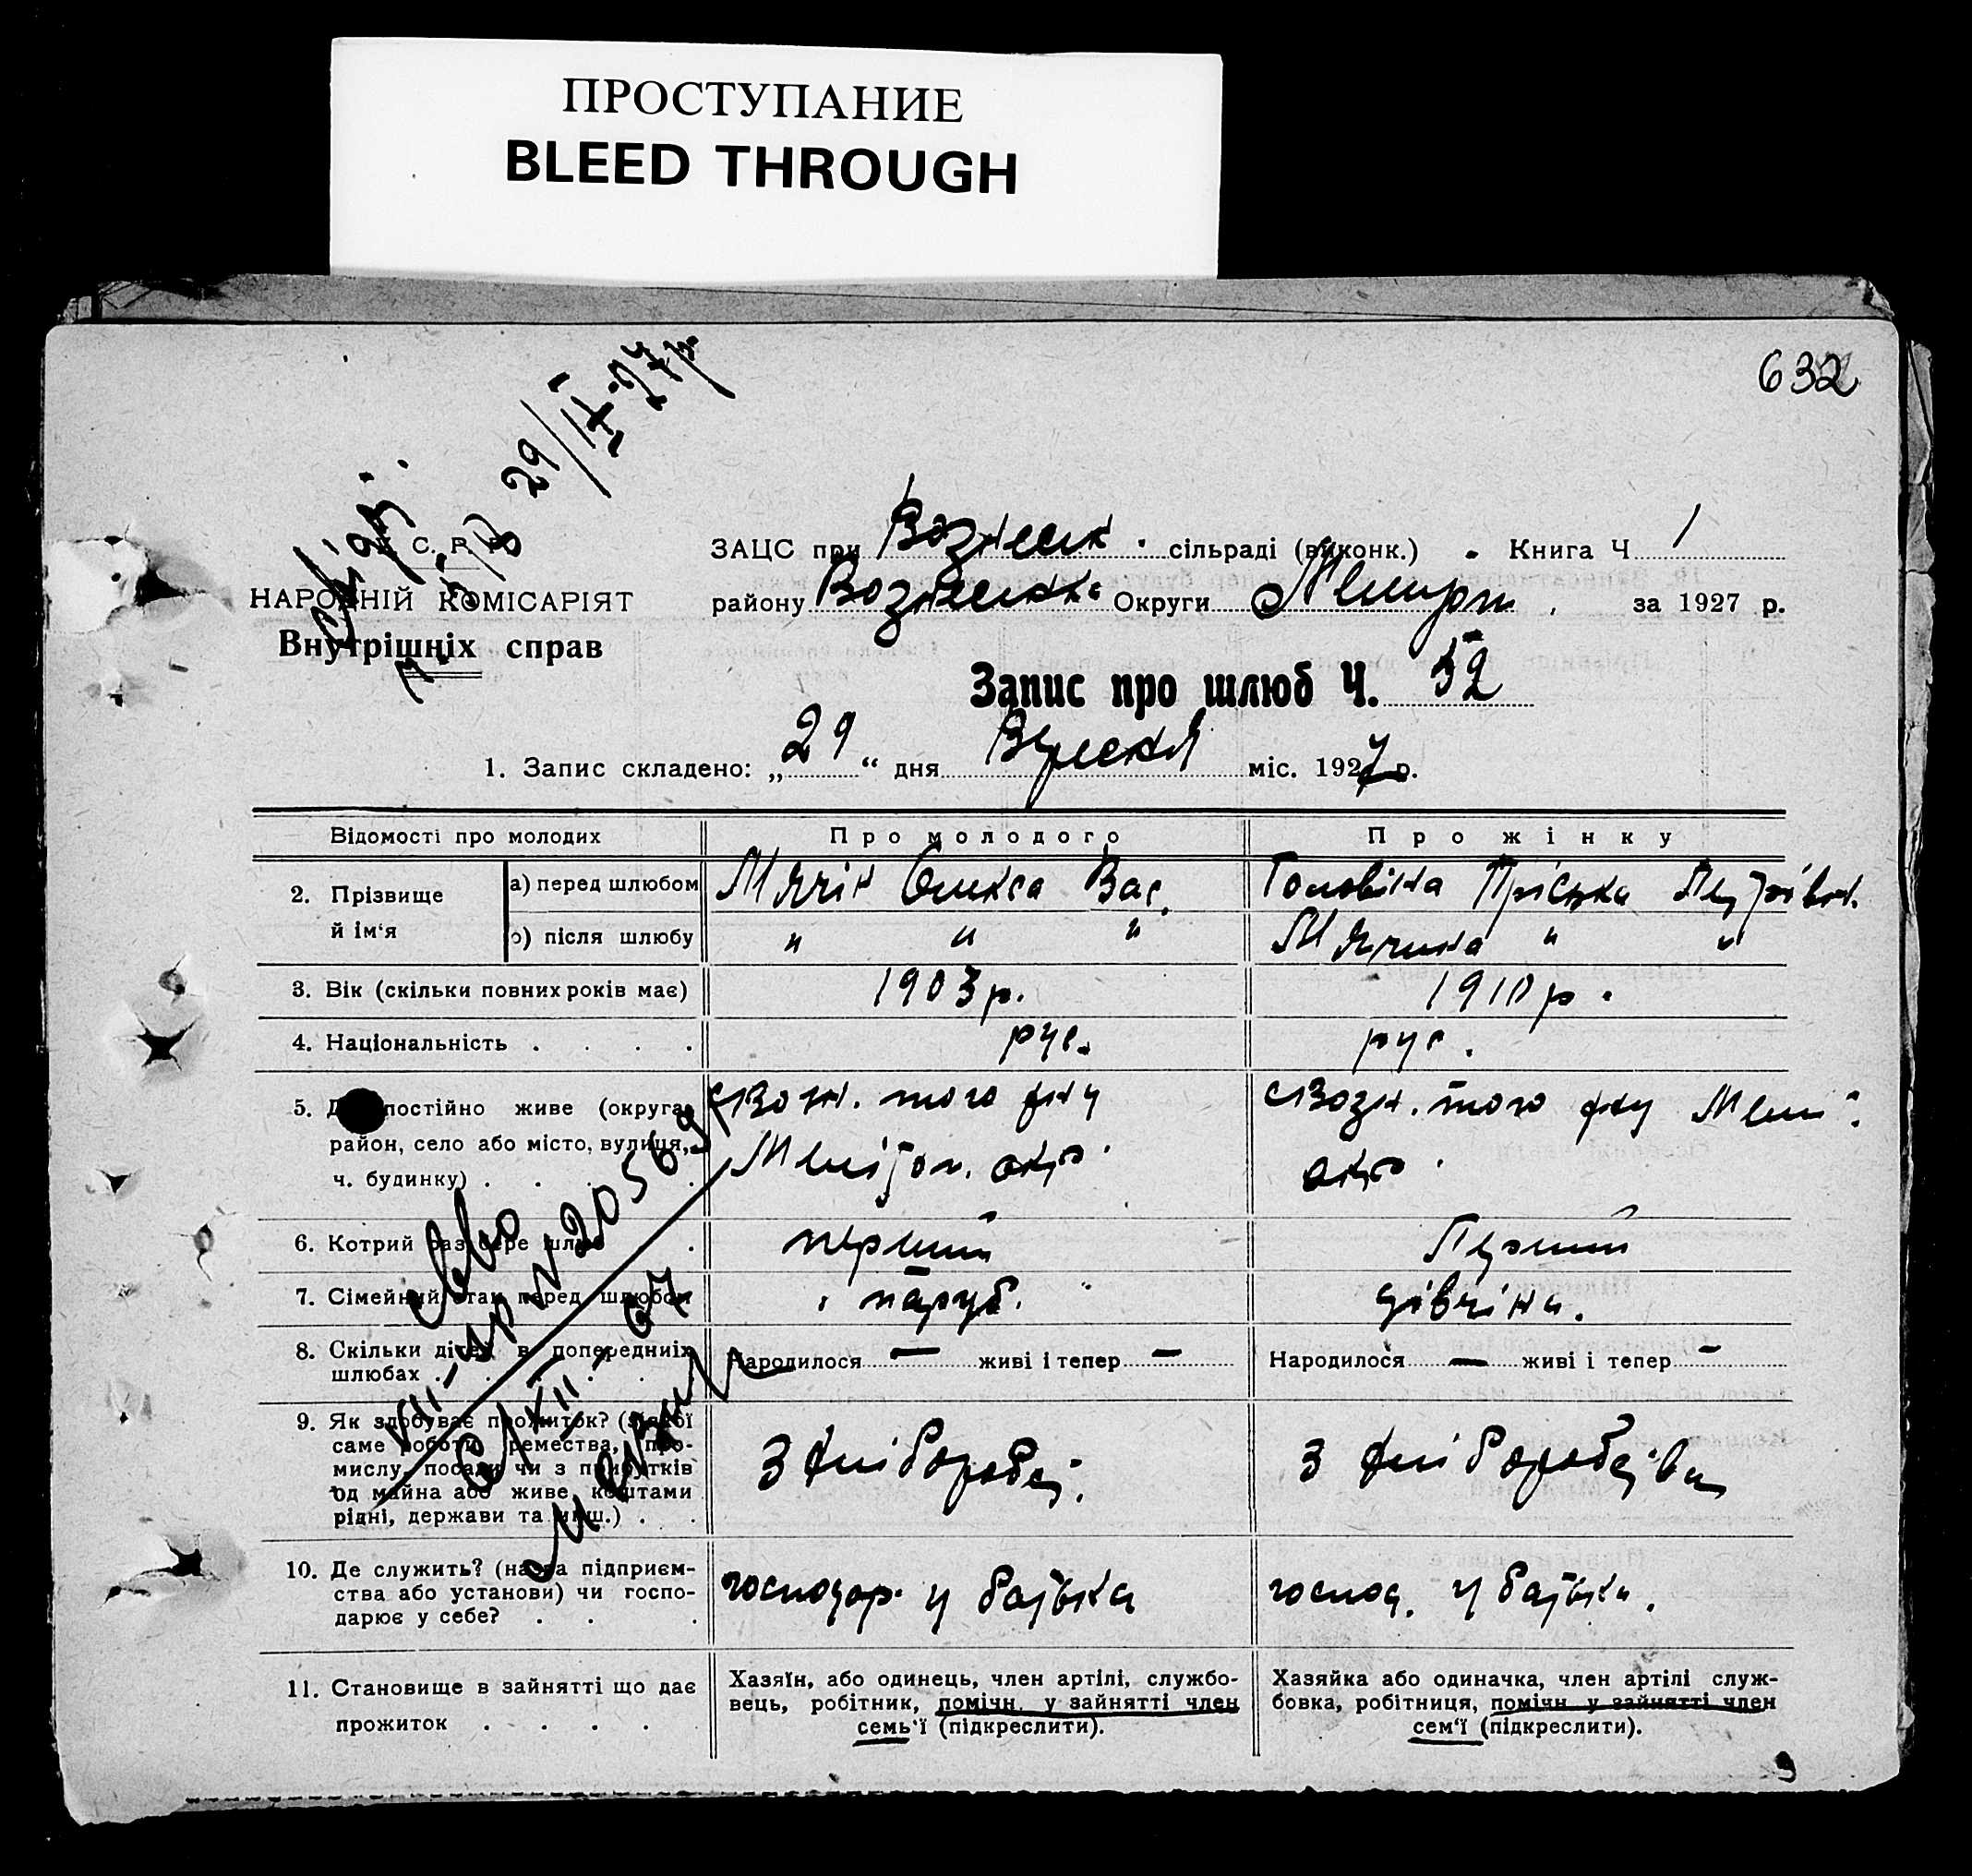 ПРОСТУПАНИЕ
BLEED THROUGH
632
29/IX-27р.
С. Р. Р.
НАРОДНІЙ КОМІСАРІЯТ
Внутрішніх справ
ЗАЦС при Вознесенк. сільраді (виконк.) Книга Ч 1
району Вознесенка Округи Меліт. за 1927 р.
Запис про шлюб Ч. 52
1. Запис складено: „29“ дня Вересня міс. 1927 р.
Відомості про молодих
Про молодого
Про жінку
2. Прізвище й ім‘я
а) перед шлюбом
Мячін Олекса Вас.
Головіна Пріська Петрівн.
б) після шлюбу
" " "
Мячина " "
3. Вік (скільки повних років має)
1903 р.
1910 р.
4. Національність . . . .
рус.
рус.
5. Де постійно живе (округа, район, село або місто, вулиця, ч. будинку) . . . .
с Возн. того р-ну
Меліто п. окр.
с Возн. того р-ну Меліт.
окр.
6. Котрий раз бере шлюб . .
перший
Перший
7. Сімейний стан перед шлюбом
паруб.
дівчина.
8. Скільки дітей в попередніх шлюбах . . . .
Народилося — живі і тепер —
Народилося — живі і тепер —
9. Як здобуває прожиток? (з якої
саме роботи, ремества, про-
мислу, посади чи з прибутків
од майна або живе коштами
рідні, держави та инш.) . .
З хліборобс.
З хліборобства
10. Де служить? (назва підприєм-
ства або установи) чи госпо-
дарює у себе? . . .
господар. у батька
господ. у батька.
11. Становище в зайнятті що дає
прожиток . . . .
Хазяїн, або одинець, член артілі, службо-
вець, робітник, помічн. у зайнятті член
семь‘ї (підкреслити).
Хазяйка або одиначка, член артілі служ-
бовка, робітниця, помічн. у зайнятті член
сем‘ї (підкреслити).
20569